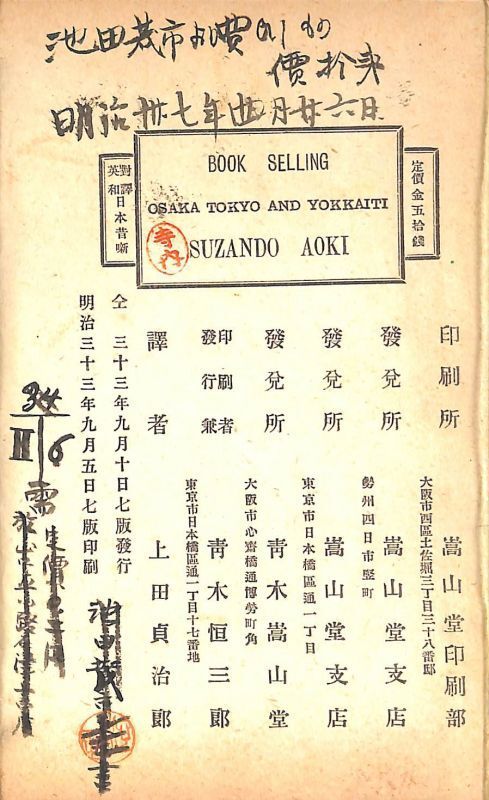 明治卅七年四月廿六日
定價金五拾錢
BOOK SELLING
OSAKA TOKYO AND YOKKAITI
SUZANDO AOKI
對譯
英和
日本昔噺
印刷所
大阪市西區土佐堀三丁目三十八番邸
嵩山堂印刷部
發兌所
勢州四日市竪町
嵩山堂支店
發兌所
東京市日本橋區通一丁目
嵩山堂支店
發兌所
大阪市心齋橋通博勞町角
青木嵩山堂
印刷者
發行兼
東京市日本橋區通一丁目十七番地
青木恒三郎
譯者
上田貞治郎
仝 三十三年九月十日七版發行
明治三十三年九月五日七版印刷
34
II 6